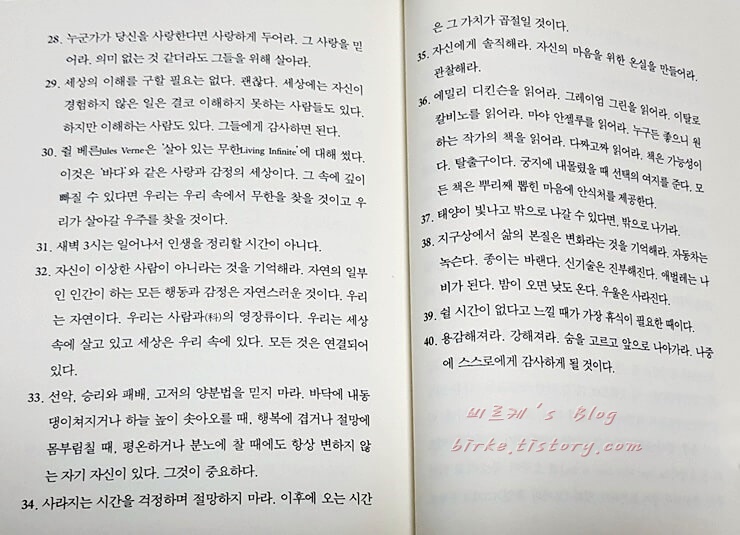 28. 누군가가 당신을 사랑한다면 사랑하게 두어라. 그 사랑을 믿
어라. 의미 없는 것 같더라도 그들을 위해 살아라.
29. 세상의 이해를 구할 필요는 없다. 괜찮다. 세상에는 자신이
경험하지 않은 일은 결코 이해하지 못하는 사람들도 있다.
하지만 이해하는 사람도 있다. 그들에게 감사하면 된다.
30. 쥘 베른Jules Verne은 '살아 있는 무한Living Infinite'에 대해 썼다.
이것은 '바다'와 같은 사랑과 감정의 세상이다. 그 속에 깊이
빠질 수 있다면 우리는 우리 속에서 무한을 찾을 것이고 우
리가 살아갈 우주를 찾을 것이다.
31. 새벽 3시는 일어나서 인생을 정리할 시간이 아니다.
32. 자신이 이상한 사람이 아니라는 것을 기억해라. 자연의 일부
인 인간이 하는 모든 행동과 감정은 자연스러운 것이다. 우리
는 자연이다. 우리는 사람과(科)의 영장류이다. 우리는 세상
속에 살고 있고 세상은 우리 속에 있다. 모든 것은 연결되어
있다.
33. 선악, 승리와 패배, 고저의 양분법을 믿지 마라. 바닥에 내동
댕이쳐지거나 하늘 높이 솟아오를 때, 행복에 겹거나 절망에
몸부림칠 때, 평온하거나 분노에 찰 때에도 항상 변하지 않
는 자기 자신이 있다. 그것이 중요하다.
34. 사라지는 시간을 걱정하며 절망하지 마라. 이후에 오는 시간
은 그 가치가 곱절일 것이다.
35. 자신에게 솔직해라. 자신의 마음을 위한 온실을 만들어라.
관찰해라.
36. 에밀리 디킨슨을 읽어라. 그레이엄 그린을 읽어라. 이탈로
칼비노를 읽어라. 마야 안젤루를 읽어라. 누구든 좋으니 원
하는 작가의 책을 읽어라. 다짜고짜 읽어라. 책은 가능성이
다. 탈출구이다. 궁지에 내몰렸을 때 선택의 여지를 준다. 모
든 책은 뿌리째 뽑힌 마음에 안식처를 제공한다.
37. 태양이 빛나고 밖으로 나갈 수 있다면, 밖으로 나가라.
38. 지구상에서 삶의 본질은 변화라는 것을 기억해라. 자동차는
녹슨다. 종이는 바랜다. 신기술은 진부해진다. 애벌레는 나
비가 된다. 밤이 오면 낮도 온다. 우울은 사라진다.
39. 쉴 시간이 없다고 느낄 때가 가장 휴식이 필요한 때이다.
40. 용감해져라. 강해져라. 숨을 고르고 앞으로 나아가라. 나중
에 스스로에게 감사하게 될 것이다.
비르케's Blog
birke.tistory.com